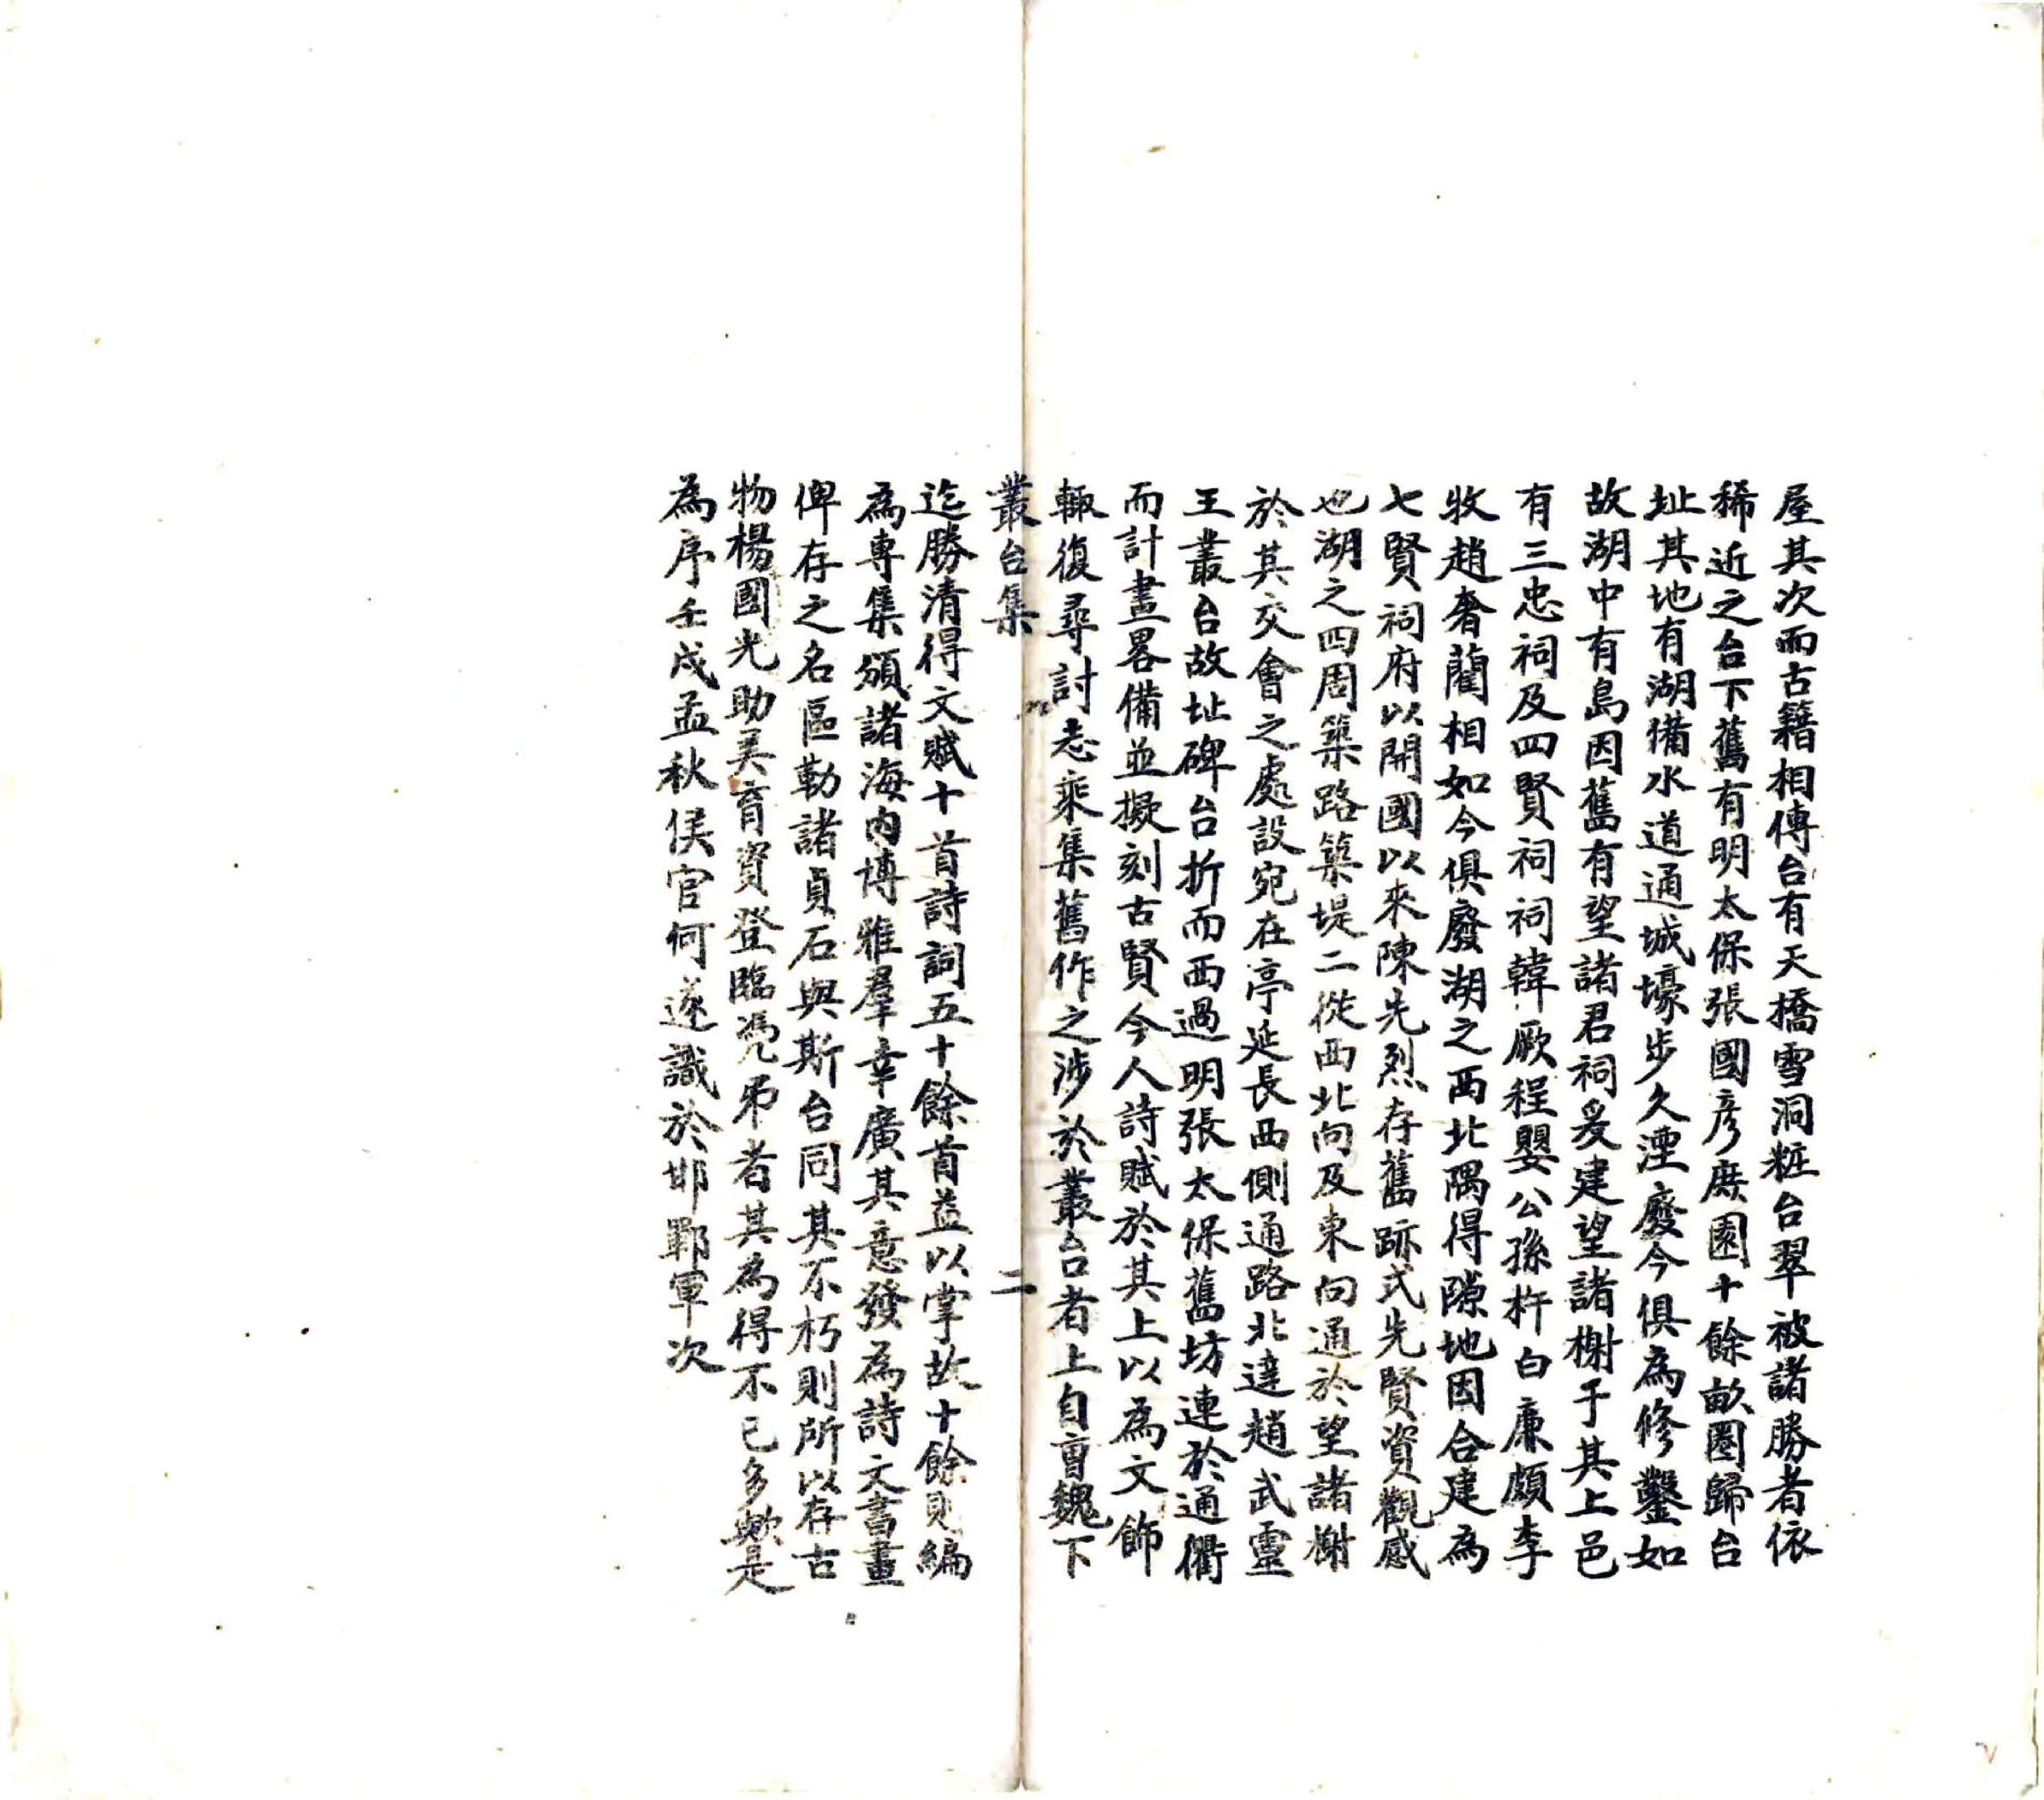 屋其次而古籍相傳台有天橋雪洞粧台翠被諸勝者依
稀近之台下舊有明太保張國彥廢園十餘畝圈歸台
址其地有湖猪水道通城壕步久湮廢今俱為修鑿如
故湖中有島因舊有望諸君祠爰建望諸榭于其上邑
有三忠祠及四賢祠祠韓厥程嬰公孫杵臼廉頗李
牧趙奢藺相如今俱廢湖之西北隅得隙地因合建為
七賢祠府以開國以來陳先烈存舊跡式先賢資觀感
也湖之四周築路築堤二從西北向及東向通於望諸榭
於其交會之處設宛在亭延長西側通路北達趙武靈
王叢台故址碑台折而西過明張太保舊坊連於通衢
而計畫畧備並擬刻古賢今人詩賦於其上以為文飾
輙復尋討志乘集舊作之涉於叢台者上自曹魏下
叢台集 二
迄勝清得文賦十首詩詞五十餘首益以掌故十餘則編
為專集頒諸海內博雅羣幸廣其意發為詩文書畫
俾存之名區勒諸貞石與斯台同其不朽則所以存古
物楊國光助美育資登臨憑弔者其為得不已多歟是
為序壬戌孟秋侯官何遂識於邯鄲軍次